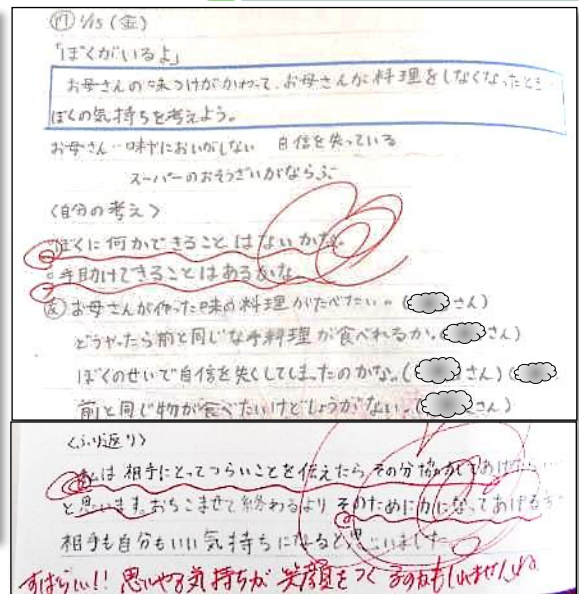 ⑰ 1/15 (金)
「ぼくがいるよ」
お母さんの味つけがかわって、お母さんが料理をしなくなったとき
ぼくの気持ちを考えよう。
お母さん…味やにおいがしない 自信を失っている
スーパーのおそうざいがならぶ
〈自分の考え〉
ぼくに何かできることはないかな。
○手助けできることはあるかな。
㊎お母さんが作った味の料理がたべたい。( さん)
どうやったら前と同じな手料理が食べれるか。( さん)
ぼくのせいで自信を失くしてしまったのかな。( さん)( 
前と同じ物が食べたいけどしょうがない。( さん)
〈ふり返り〉
私は相手にとってつらいことを伝えたらその分協力してあげ
と思います。おちこませて終わるよりそのために力になってあげる方
相手も自分もいい気持ちになると思いました
すばらしい!! 思いやる気持ちが笑顔をつくるのかもしれませんね